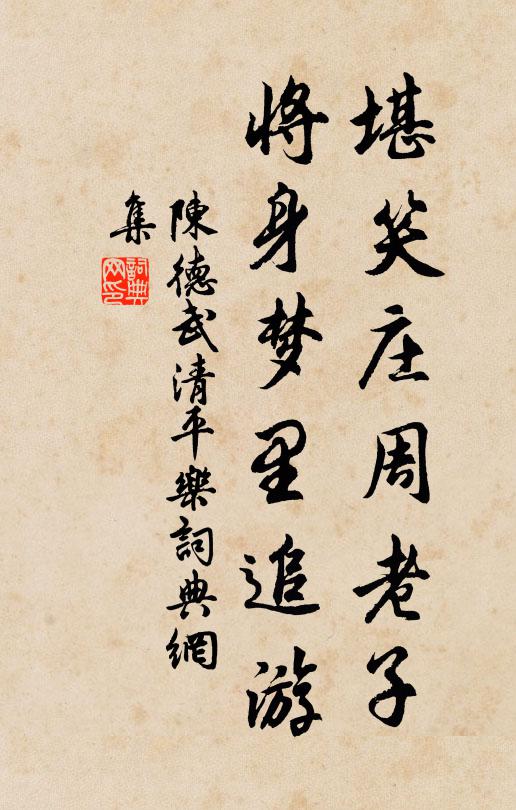 堪笑庄周老子
将身梦里追游
陳德武清平樂詞典網
集
詞典
网印